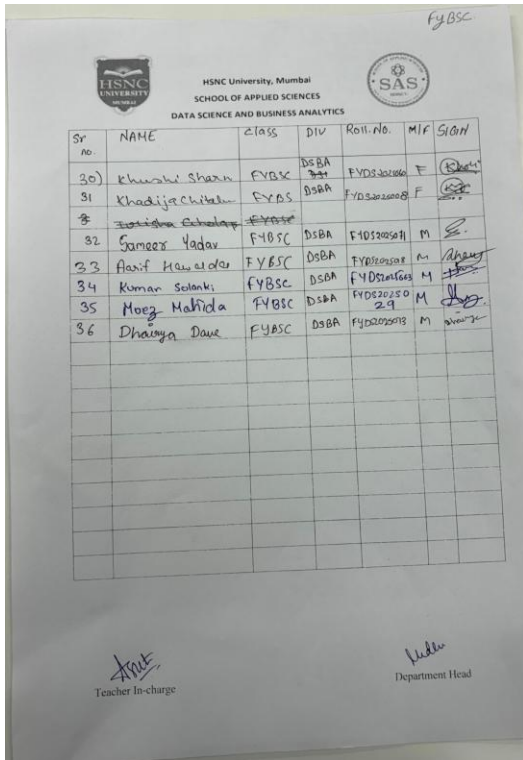 FYBSC
HSNC
UNIVERSITY
MUMBAI
SAS
HSNC University, Mumbai
SCHOOL OF APPLIED SCIENCES
DATA SCIENCE AND BUSINESS ANALYTICS
Sr no. NAME Class DIV Roll.No. M/F SIGN
30) Khushi Sharn FYBSC DSBA F
31 Khadija Chitalu FYDS DSBA FYDS2025008 F
FYBSC
32 Sameer Yadav FYBSC DSBA FYDS2025071 M
33 Aarif Hawaldar FYBSC DSBA M
34 Kumar Solanki FYBSC DSBA FYDS2025063 M
35 Moez Mahida FYBSC DSBA FYDS2025029 M
36 Dhairya Dave FYBSC DSBA FYDS2025013 M
Teacher In-charge
Department Head